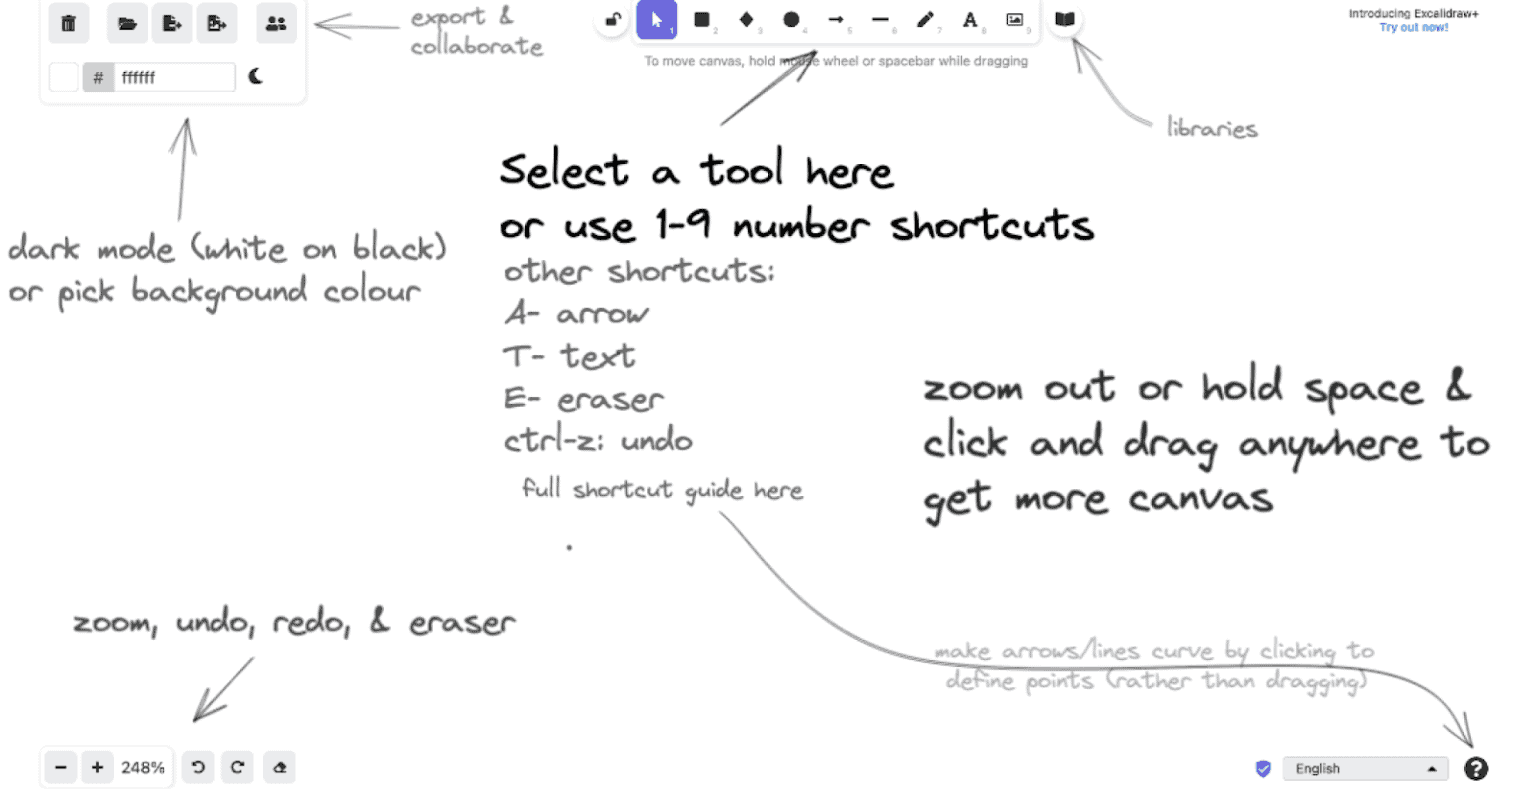 export &
collaborate
# ffffff
1 2 3 4 5 6 7 A 8 9
To move canvas, hold mouse wheel or spacebar while dragging
Introducing Excalidraw+
Try out now!
libraries
Select a tool here
or use 1-9 number shortcuts
dark mode (white on black)
or pick background colour
other shortcuts:
A- arrow
T- text
E- eraser
ctrl-z: undo
full shortcut guide here
zoom out or hold space &
click and drag anywhere to
get more canvas
zoom, undo, redo, & eraser
make arrows/lines curve by clicking to
define points (rather than dragging)
- + 248%
English
?